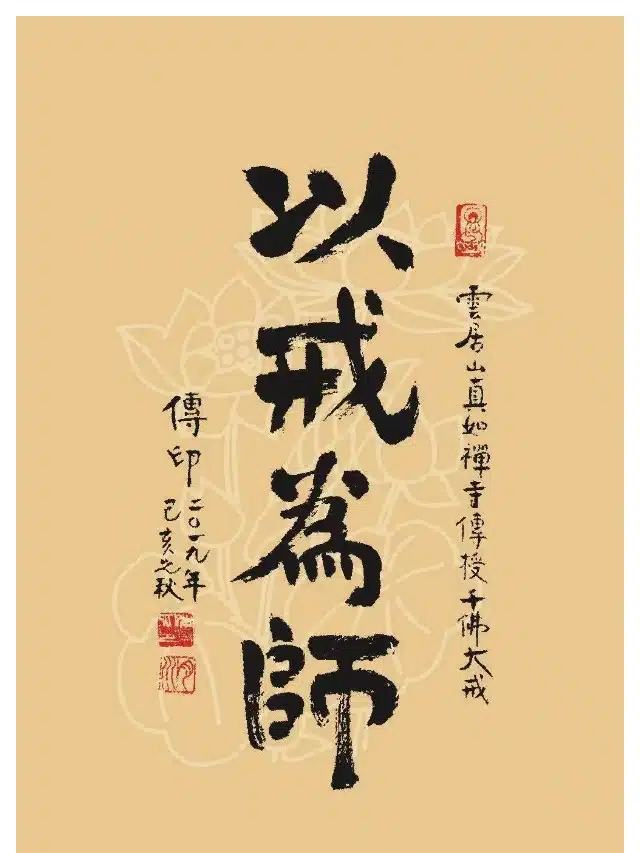 雲居山真如禪寺傳授千佛大戒
以戒為師
傳印
二〇一九年
己亥之秋